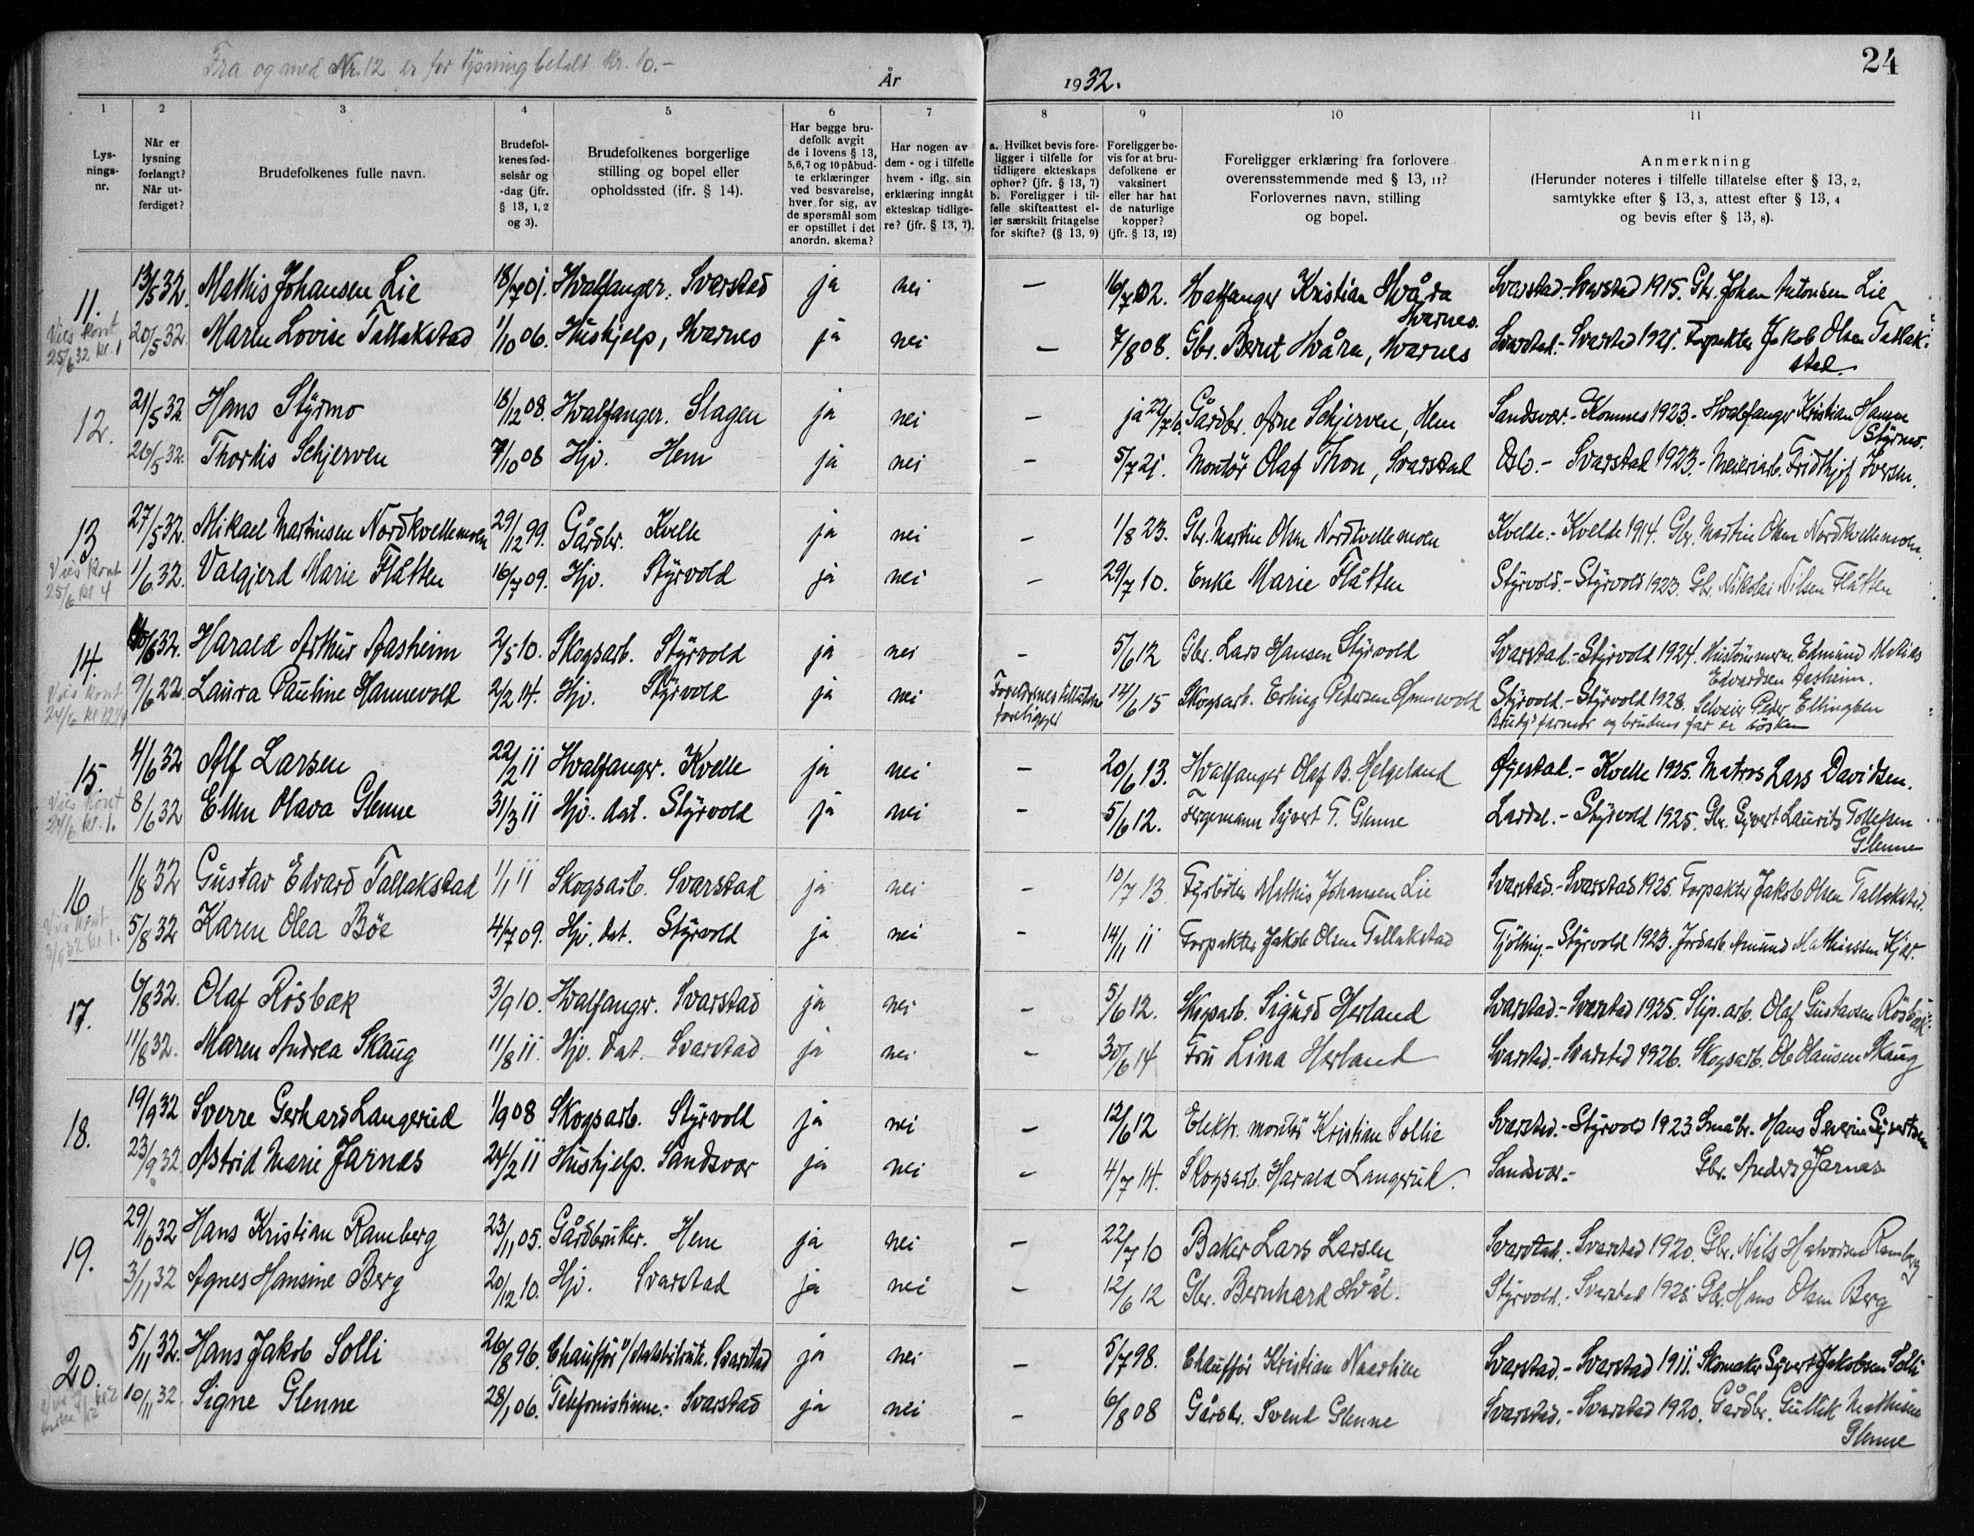 Fra og med Nr. 12 er for lysning betalt kr. 10.-
År 1932.
24
1 2 3 4 5 6 7 8 9 10 11
Lys-
nings-
nr.
Når er
lysning
forlangt?
Når ut-
ferdiget?
Brudefolkenes fulle navn.
Brudefol-
kenes fød-
selsår og
-dag (jfr.
§ 13, 1, 2
og 3).
Brudefolkenes borgerlige
stilling og bopel eller
opholdssted (ifr. § 14).
Har begge bru-
defolk avgit
de i lovens § 13,
5,6,7 og 10 påbud-
te erklæringer
ved besvarelse,
hver for sig, av
de spørsmål som
er opstillet i det
anordn. skema?
Har nogen av
dem - og i tilfelle
hvem - iflg. sin
erklæring inngåt
ekteskap tidlige-
re? (jfr. § 13, 7).
a. Hvilket bevis fore-
ligger i tilfelle for
tidligere ekteskaps
ophør? (jfr. § 13, 7)
b. Foreligger i til-
felle skifteattest el-
ler særskilt fritagelse
for skifte? (§ 13, 9)
Foreligger be-
vis for at bru-
defolkene er
vaksinert
eller har hat
de naturlige
kopper?
(jfr. § 13, 12)
Foreligger erklæring fra forlovere
overensstemmende med § 13, 11?
Forlovernes navn, stilling
og bopel.
Anmerkning
(Herunder noteres i tilfelle tillatelse efter § 13, 2,
samtykke efter § 13, 3, attest efter § 13, 4
og bevis efter § 13, 8).
11. 13/5 32. Mathis Johansen Lie 18/7 01. Hvalfanger. Svarstad ja nei — 16/7 02. Hvalfanger Kristian Hvåra Svarstad.- Svarstad 1915. Gbr. Johan Antonsen Lie
Hvarnes.
Vies kont
25/6 32 kl. 1
20/5 32 Maren Lovise Tallakstad 1/10 06. Hushjelp, Hvarnes ja nei — 7/8 08. Gbr. Bernt Hvåra, Hvarnes Svarstad.- Svarstad 1921. Forpakter Jakob Olsen Tallak-
stad.
12. 21/5 32 Hans Styrmo 18/12 08. Hvalfanger. Slagen ja nei — ja 22/7 Gårdbr. Arne Schjerven, Hem Sandsvær.- Komnes 1923.- Hvalfanger Kristian Hansen
Styrmo.
26/5 32. Thordis Schjerven 7/10 08 Hjv. Hem ja nei — 5/7 21. Montør Olaf Thon, Svarstad Oslo.- Svarstad 1923.- Meieriarb. Fridthjof Iversen.
13 27/5 32. Mikael Martinsen Nordkvellemoen 29/12 99. Gårdbr. Kvelle ja nei — 1/8 23. Gbr. Martin Olsen Nordkvellemoen Kvelde.- Kvelde 1914. Gbr. Martin Olsen Nordkvellemoen.
Vies kont
25/6 kl 4
1/6 32. Valgjerd Marie Flåtten 16/7 09. Hjv. Styrvold ja nei — 29/7 10. Enke Marie Flåtten Styrvold.- Styrvold 1923. Gbr. Nikolai Nilsen Flåtten
14. 6/6 32. Harald Arthur Aasheim 2/5 10. Skogsarb. Styrvold ja nei — 5/6 12 Gbr. Lars Hansen Styrvold Svarstad.- Styrvold 1924. Hustømmerm. Edmund Matias
Edvardsen Aasheim.
Vies kont
24/6 kl 12
9/6 22. Laura Pauline Hannevold 2/2 14. Hjv. Styrvold ja nei Foreldrenes tillatelse
foreligger 14/6 15 Skogsarb. Erling Pedersen Hannevold Styrvold.- Styrvold 1928. Selveier Peder Ellingsen
Brudg's farmor og brudens far er søsken
15. 4/6 32 Alf Larsen 22/2 11 Hvalfanger. Kvelle ja nei — 20/6 13. Hvalfanger Olaf B. Helgeland Øyestad.- Kvelle 1925. Matros Lars Davidsen.
Vies kont
24/6 kl. 1.
8/6 32 Ellen Olava Glenne 31/3 11 Hjv. dat. Styrvold ja nei — 5/6 12. Fergemann Syvert T. Glenne Lardal.- Styrvold 1925. Gbr. Syvert Laurits Tollefsen
Glenne
16 1/8 32 Gustav Edvard Tallakstad 1/1 11 Skogsarb. Svarstad ja nei — 10/7 13 Fyrbøter Mathis Johansen Lie Svarstad.- Svarstad 1925. Forpakter Jakob Olsen Tallakstad.
Vies kont
kl 1.
5/8 32 Karen Olea Bøe 4/7 09. Hjv. dat. Styrvold ja nei — 14/11 11 Forpakter Jakob Olsen Tallakstad Tjølling.- Styrvold 1923. Jordarb. Amund Mathiassen Kjær.
17. 6/8 32. Olaf Rösbæk 3/9 10. Hvalfanger. Svarstad ja nei — 5/6 12. Skogsarb. Sigurd Herland Svarstad.- Svarstad 1925. Slip. arb. Olaf Gustavsen Rösbæk.
11/8 32. Maren Andrea Skaug 11/8 11. Hjv. dat. Svarstad ja nei — 30/6 14 Fru Lina Herland Svarstad.- Svarstad 1926. Skogsarb. Ole Olausen Skaug
18. 19/9 32 Sverre Gerhard Langerud 1/9 08 Skogsarb. Styrvold ja nei — 12/6 12 Elektr. montør Kristian Sollie Svarstad.- Styrvold 1923. Småbr. Hans Severin Syvertsen
23/9 32 Astrid Marie Jarnæs 24/2 11 Hushjelp. Sandsvær ja nei — 4/7 14. Skogsarb. Harald Langerud. Sandsvær.- Gbr. Anders Jarnæs
19. 29/10 32 Hans Kristian Ramberg 23/11 05. Gårdbruker. Hem ja nei — 22/7 10 Baker Lars Larsen Svarstad.- Svarstad 1920. Gbr. Nils Halvorsen Ramberg
3/11 32 Agnes Hansine Berg 20/12 10. Hjv. Svarstad ja nei — 12/6 12 Gbr. Bernhard Hvål. Styrvold.- Svarstad 1925. Gbr. Hans Olsen Berg
20. 5/11 32. Hans Jakob Solli 26/8 96. Chauffør v/ Svarstad ja nei — 5/7 98. Chauffør Kristian Svarstad.- Svarstad 1911. Skomaker Syvert Jakobsen Solli
10/11 32. Signe Glenne 28/1 06. Telefonistinne.- Svarstad ja nei — 6/8 08 Gårdbr. Svend Glenne Svarstad.- Svarstad 1920. Gårdbr. Gullik Mathisen
Glenne